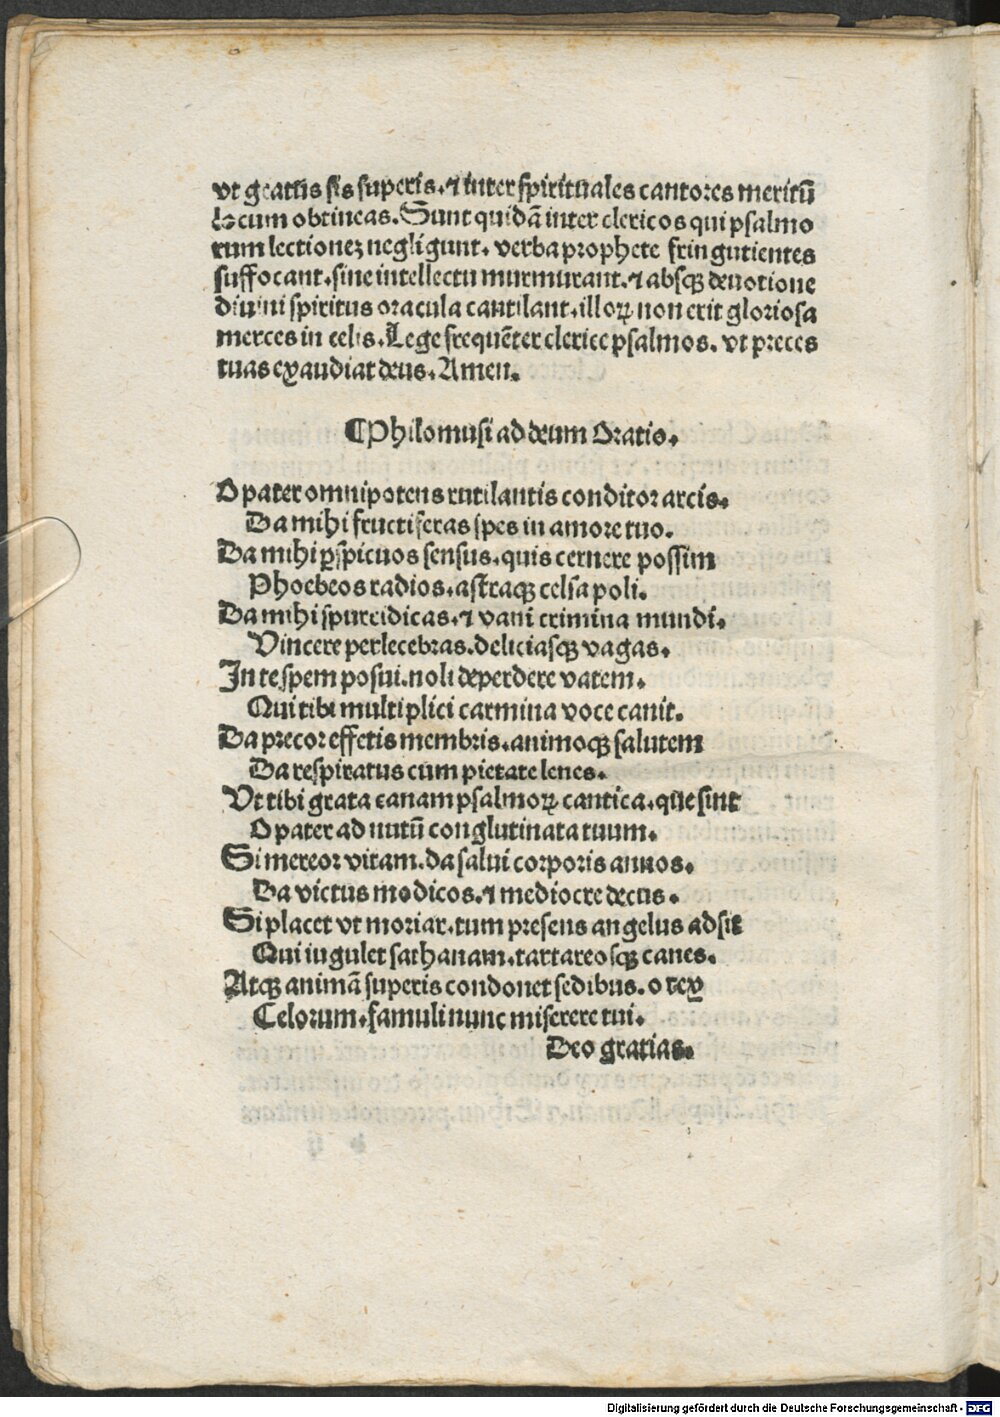 vt gratus sis superis. ⁊ inter spirituales cantores meritū
locum obtineas. Sunt quidā inter clericos qui psalmo
rum lectionez negligunt. verba prophete fringutientes
suffocant. sine intellectu murmurant. ⁊ absqꝫ deuotione
diuini spiritus oracula cantilant. illoꝝ non erit gloriosa
merces in celis. Lege frequēter clerice psalmos. vt preces
tuas exaudiat deus. Amen.
¶ Philomusi ad deum Oratio.
O pater omnipotens rutilantis conditor arcis.
Da mihi fructiferas spes in amore tuo.
Da mihi ꝑspicuos sensus. quis cernere possim
Phoebeos radios. astraqꝫ celsa poli.
Da mihi spurcidicas. ⁊ vani crimina mundi.
Vincere perlecebras. deliciasqꝫ vagas.
In te spem posui. noli deperdere vatem.
Qui tibi multiplici carmina voce canit.
Da precor effetis membris. animoqꝫ salutem
Da respiratus cum pietate lenes.
Vt tibi grata canam psalmoꝝ cantica. que sint
O pater ad nutū conglutinata tuum.
Si mereor vitam. da salui corporis annos.
Da victus modicos. ⁊ mediocre decus.
Si placet vt moriar. tum presens angelus adsit
Qui iugulet sathanam. tartareosqꝫ canes.
Atqꝫ animā superis condonet sedibus. o rex
Celorum. famuli nunc miserere tui.
Deo gratias.
Digitalisierung gefördert durch die Deutsche Forschungsgemeinschaft - DFG